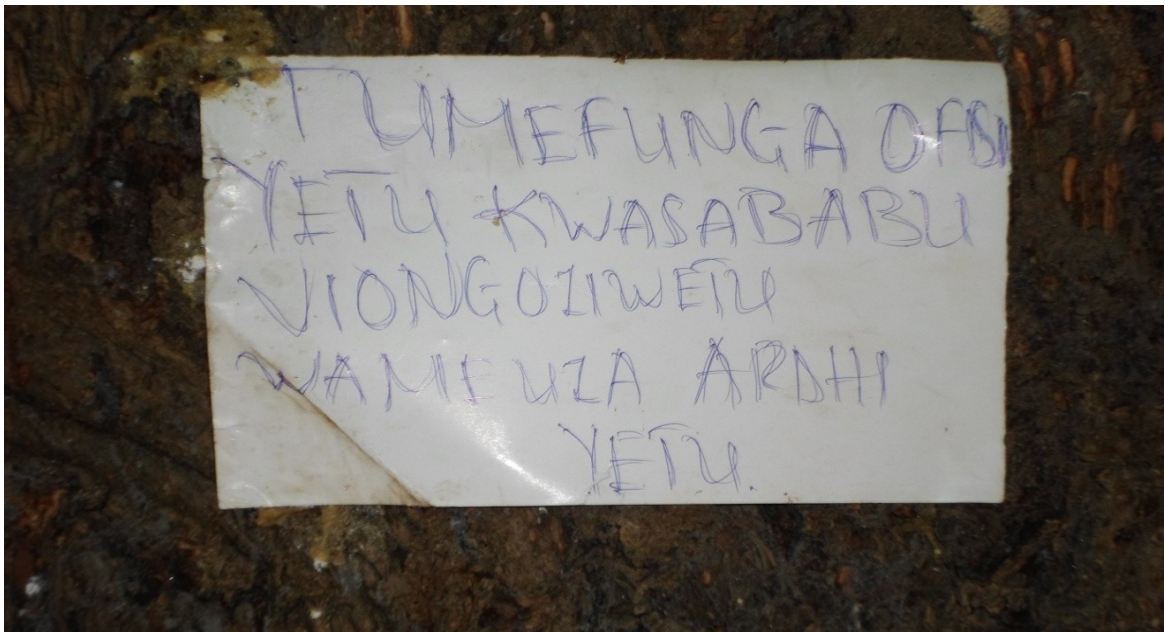 TUMEFUNGA OFISI
YETU KWASABABU
VIONGOZIWETU
WAMEUZA ARDHI
YETU.